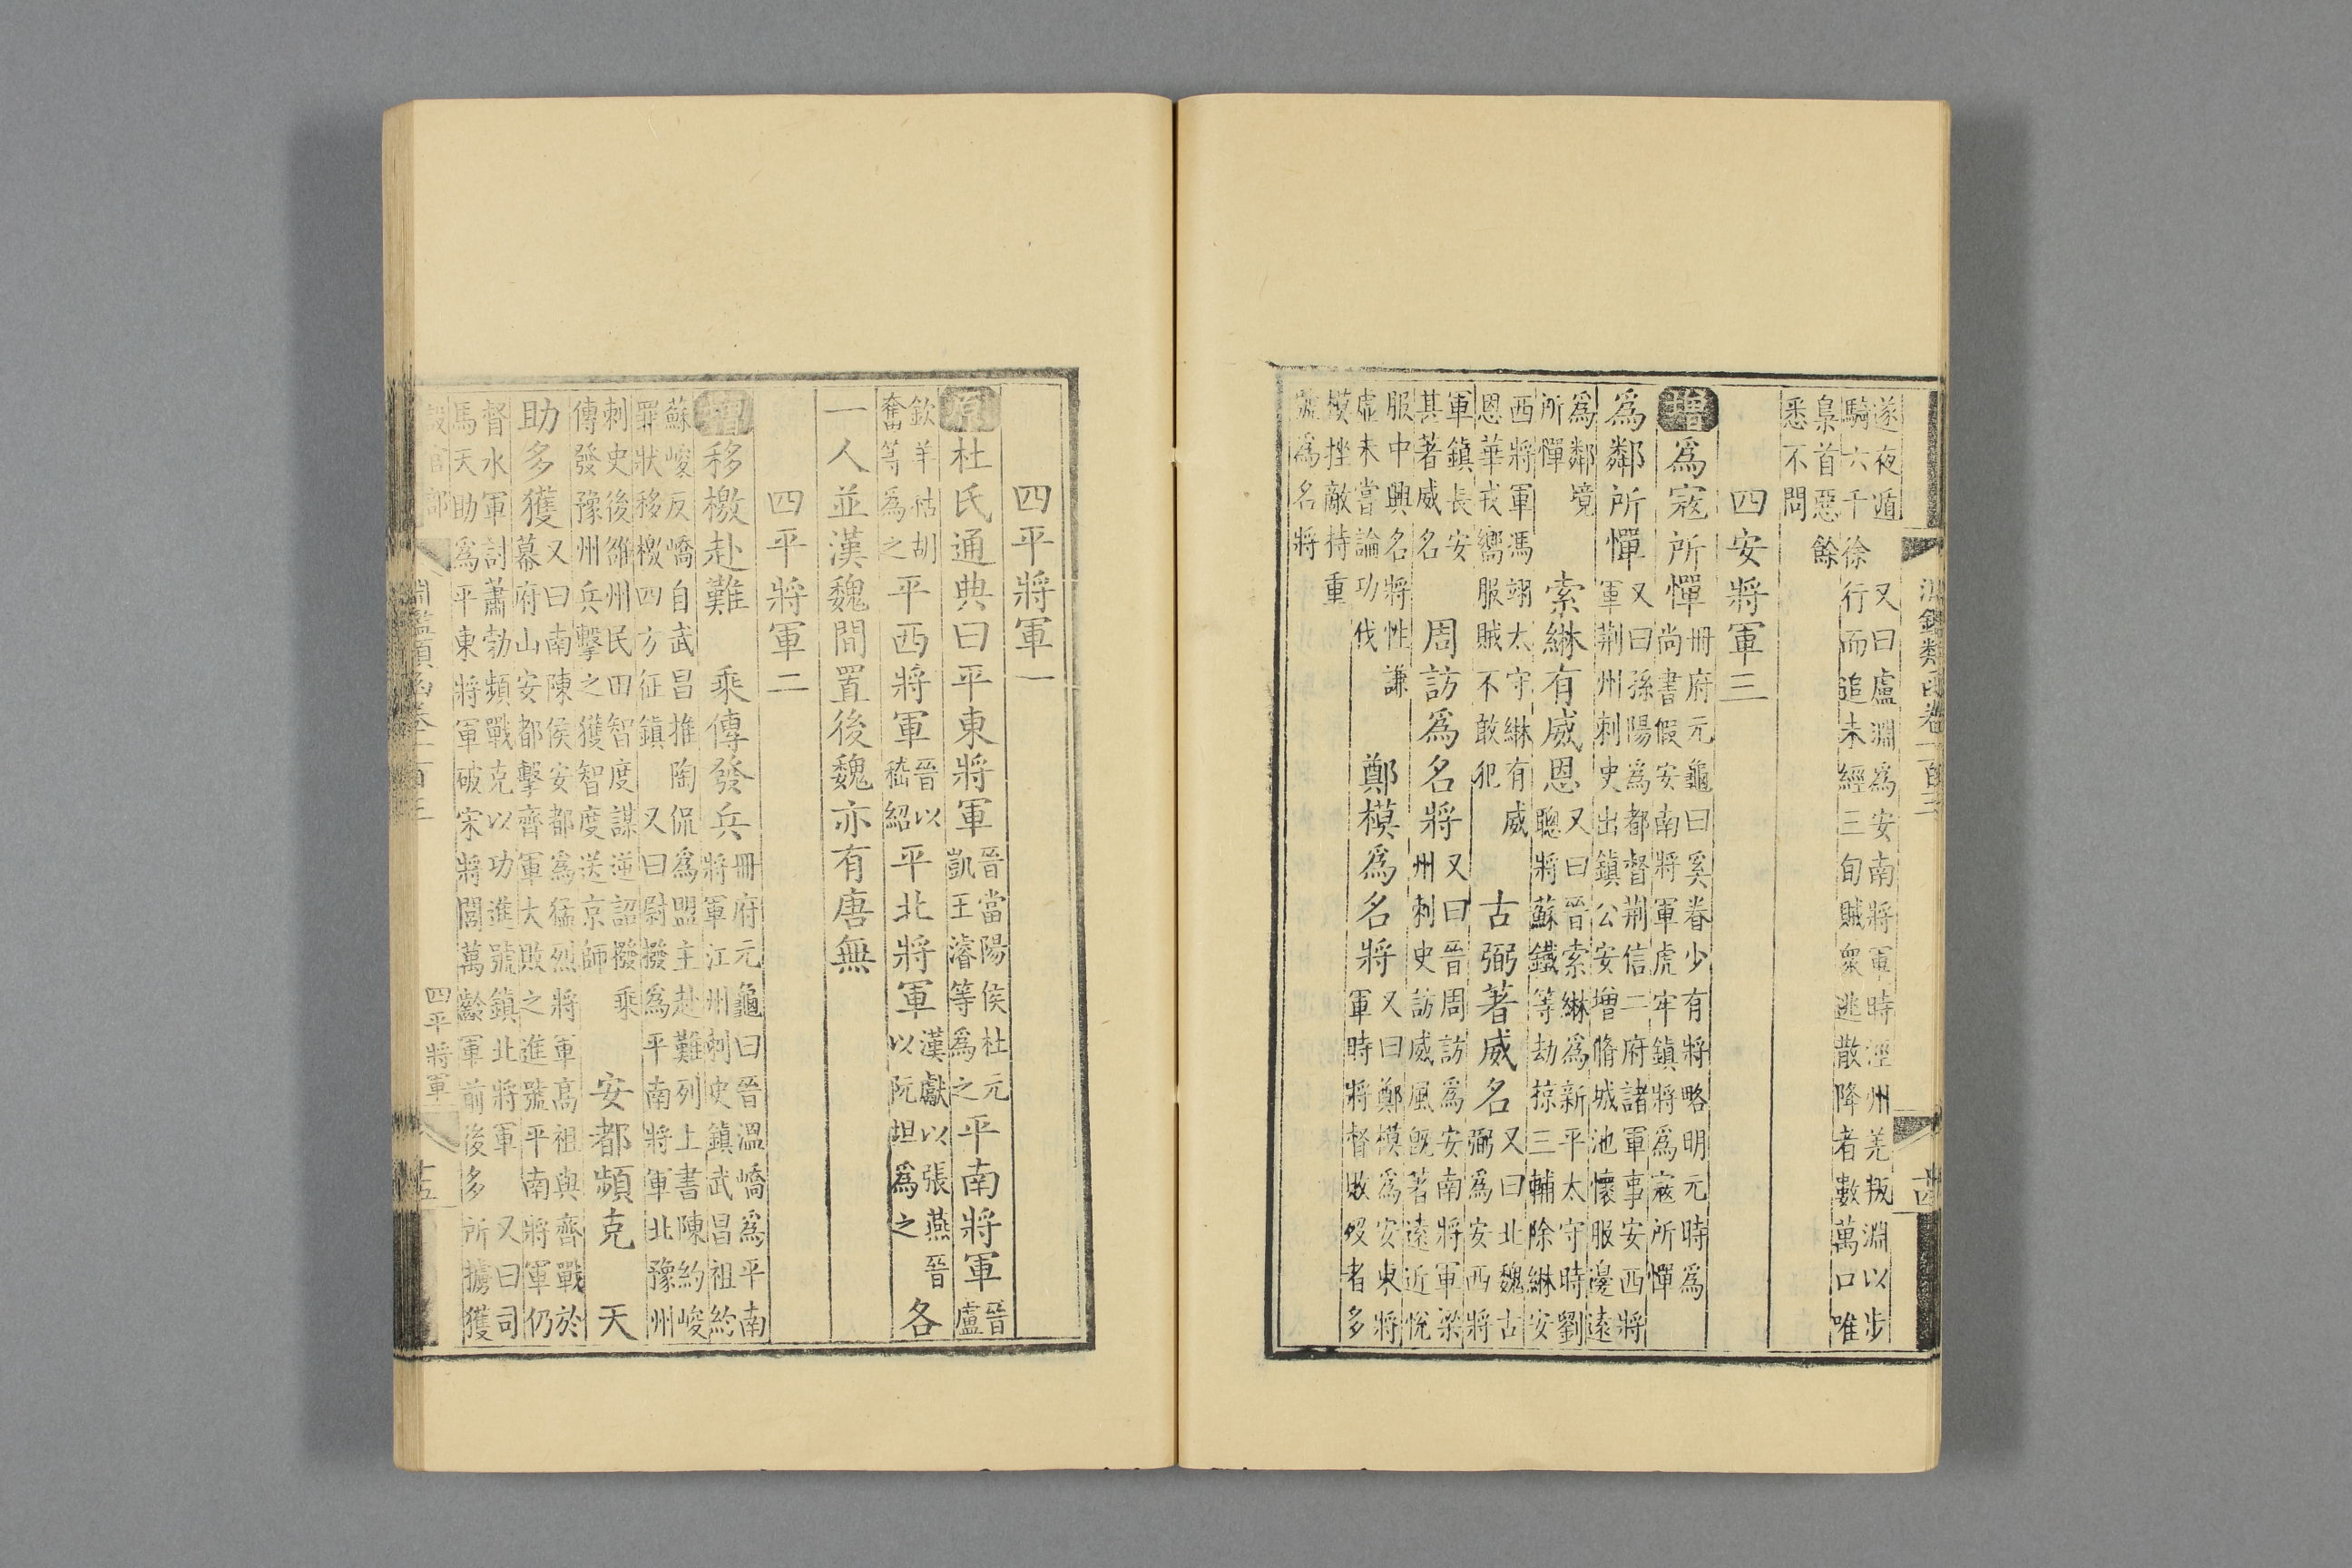 淵鑑類函卷一百三
十四
遂夜遁　又曰盧淵爲安南將軍時涇州羌叛淵以步
騎六千徐行而追未經三旬賊衆逃散降者數萬口唯
梟首惡餘
悉不問
四安將軍三
增爲寇所憚
冊府元龜曰奚眷少有將略明元時爲
尚書假安南將軍虎牢鎮將爲寇所憚
爲鄰所憚
又曰孫陽爲都督荆信二府諸軍事安西將
軍荆州刺史出鎮公安增脩城池懷服邊遠
爲鄰境
所憚
索綝有威恩
又曰晉索綝爲新平太守時劉
聰將蘇鐵等劫掠三輔除綝安
西將軍馮翊太守綝有威
恩華戎嚮服賊不敢犯
古弼著威名
又曰北魏古
弼爲安西將
軍鎮長安
甚著威名
周訪爲名將
又曰晉周訪爲安南將軍梁
州刺史訪威風既著遠近悅
服中興名將性謙
虛未嘗論功伐
鄭模爲名將
又曰鄭模爲安東將
軍時將督敗歿者多
模挫敵持重
號爲名將
四平將軍一
原杜氏通典曰平東將軍
晉當陽侯杜元
凱王濬等爲之
平南將軍
晉
盧
欽羊祜胡
奮等爲之
平西將軍
晉以
嵇紹
平北將軍
漢獻以張燕晉
以阮坦爲之
各
一人並漢魏間置後魏亦有唐無
四平將軍二
增移檄赴難　乘傳發兵
冊府元龜曰晉溫嶠爲平南
將軍江州刺史鎮武昌祖約
蘇峻反嶠自武昌推陶侃爲盟主赴難列上書陳約峻
罪狀移檄四方征鎮　又曰尉撥爲平南將軍北豫州
刺史後雒州民田智度謀逆詔撥乘
傳發豫州兵擊之獲智度送京師
安都頻克　天
助多獲
又曰南陳侯安都爲猛烈將軍高祖與齊戰於
幕府山安都擊齊軍大敗之進號平南將軍仍
督水軍討蕭勃頻戰克以功進號鎮北將軍　又曰司
馬天助爲平東將軍破宋將閭萬齡軍前後多所擄獲
設官部
淵鑑類函卷一百三
四平將軍
十五